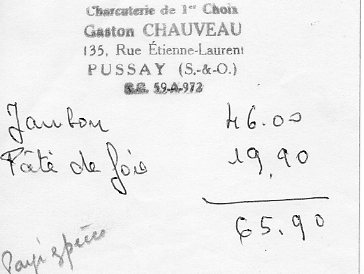 Charcuterie de 1er Choix
Gaston CHAUVEAU
135, Rue Étienne-Laurent
PUSSAY (S.-&-O.)
R.C. 59-A-973
Jambon 46.00
Pâté de foie 19,90
65.90
Payé